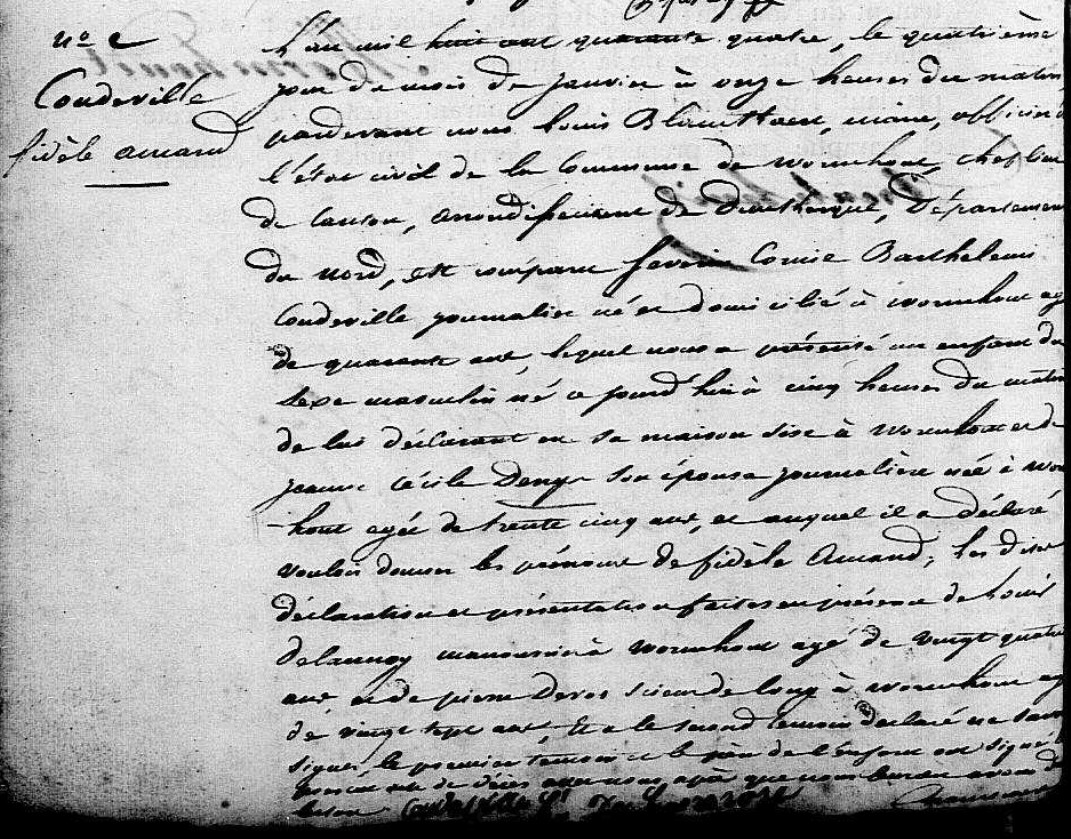 n° 2
Coudeville
fidèle amand
L'an mil huit cent quarante quatre, le quatrième
jour du mois de Janvier à onze heures du matin
pardevant nous Louis maire, officier d
l'état civil de la Commune de wormhout, chef lieu
de Canton, arrondissement de Dunkerque, Département
du nord, est comparu Severin Comile Barthelemi
Coudeville journalier né et domicilié à wormhout ag
de quarante ans, lequel nous a présenté un enfant du
sexe masculin né ce jourd'hui à cinq heures du matin
de lui déclarant en sa maison sise à wormhout et de
jeanne Cécile Denys son épouse journalière née à wor
-hout agée de trente cinq ans, et auquel il a déclaré
vouloir donner les prénoms de fidèle Amand, les dites
déclaration et présentation faites en présence de Louis
Delannoy à wormhout agé de vingt quatre
ans, et de pierre Devos scieur de long à wormhout ag
de vingt sept ans, Et a le second témoin déclaré ne savoir
signer, le premier témoin et le père de l'enfant ont signé
présent acte de après que nous leur en avons
lecture